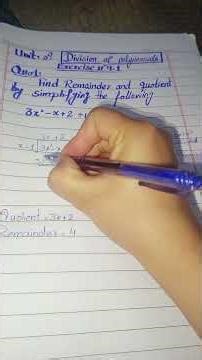 Unit: 09 Division of polynomials
Exercise no 9.1
Quo1:
Find Remainder and Quotient
by simplifying the following
3x² - x + 2 ÷
3x + 2
x - 1
3x²
Quotient = 3x + 2
Remainder = 4